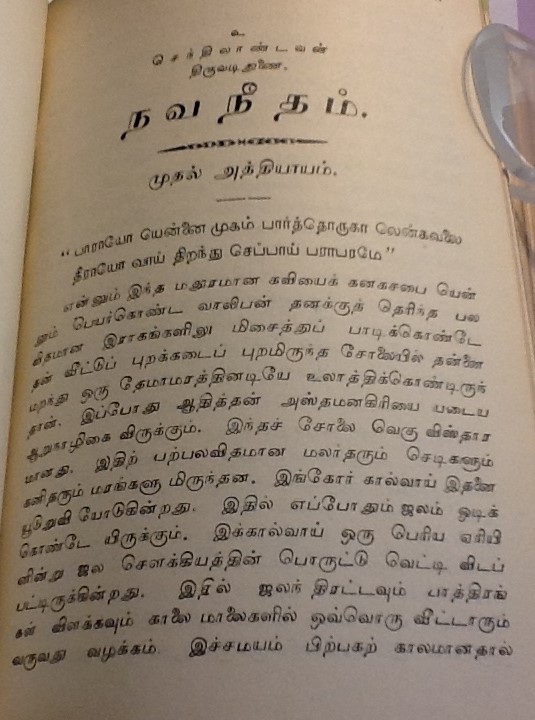 உ
செந்திலாண்டவன்
திருவடி துணை.
நவநீதம்.
முதல் அத்தியாயம்.
“பாராயோ யென்னை முகம் பார்த்தொருகா லென்கவலை
தீராயோ வாய் திறந்து செப்பாய் பராபரமே”
என்னும் இந்த மதுரமான கவியைக் கனகசபை யென்
னும் பெயர்கொண்ட வாலிபன் தனக்குத் தெரிந்த பல
விதமான இராகங்களிலு மிசைத்துப் பாடிக்கொண்டே
தன் வீட்டுப் புறக்கடைப் புறமிருந்த சோலையில் தன்னை
மறந்து ஒரு தேமாமரத்தினடியே உலாத்திக்கொண்டிருந்
தான். இப்போது ஆதித்தன் அஸ்தமனகிரியை யடைய
ஆறுநாழிகை விருக்கும். இந்தச் சோலை வெகு விஸ்தார
மானது. இதிற் பற்பலவிதமான மலர்தரும் செடிகளும்
கனிதரும் மரங்களு மிருந்தன. இங்கோர் கால்வாய் இதனை
யூடுறுவி யோடுகின்றது. இதில் எப்போதும் ஜலம் ஓடிக்
கொண்டே யிருக்கும். இக்கால்வாய் ஒரு பெரிய ஏரியி
னின்று ஜல சௌக்கியத்தின் பொருட்டு வெட்டி விடப்
பட்டிருக்கின்றது. இதில் ஜலந் திரட்டவும் பாத்திரங்
கள் விளக்கவும் காலை மாலைகளில் ஒவ்வொரு வீட்டாரும்
வருவது வழக்கம். இச்சமயம் பிற்பகற் காலமானதால்